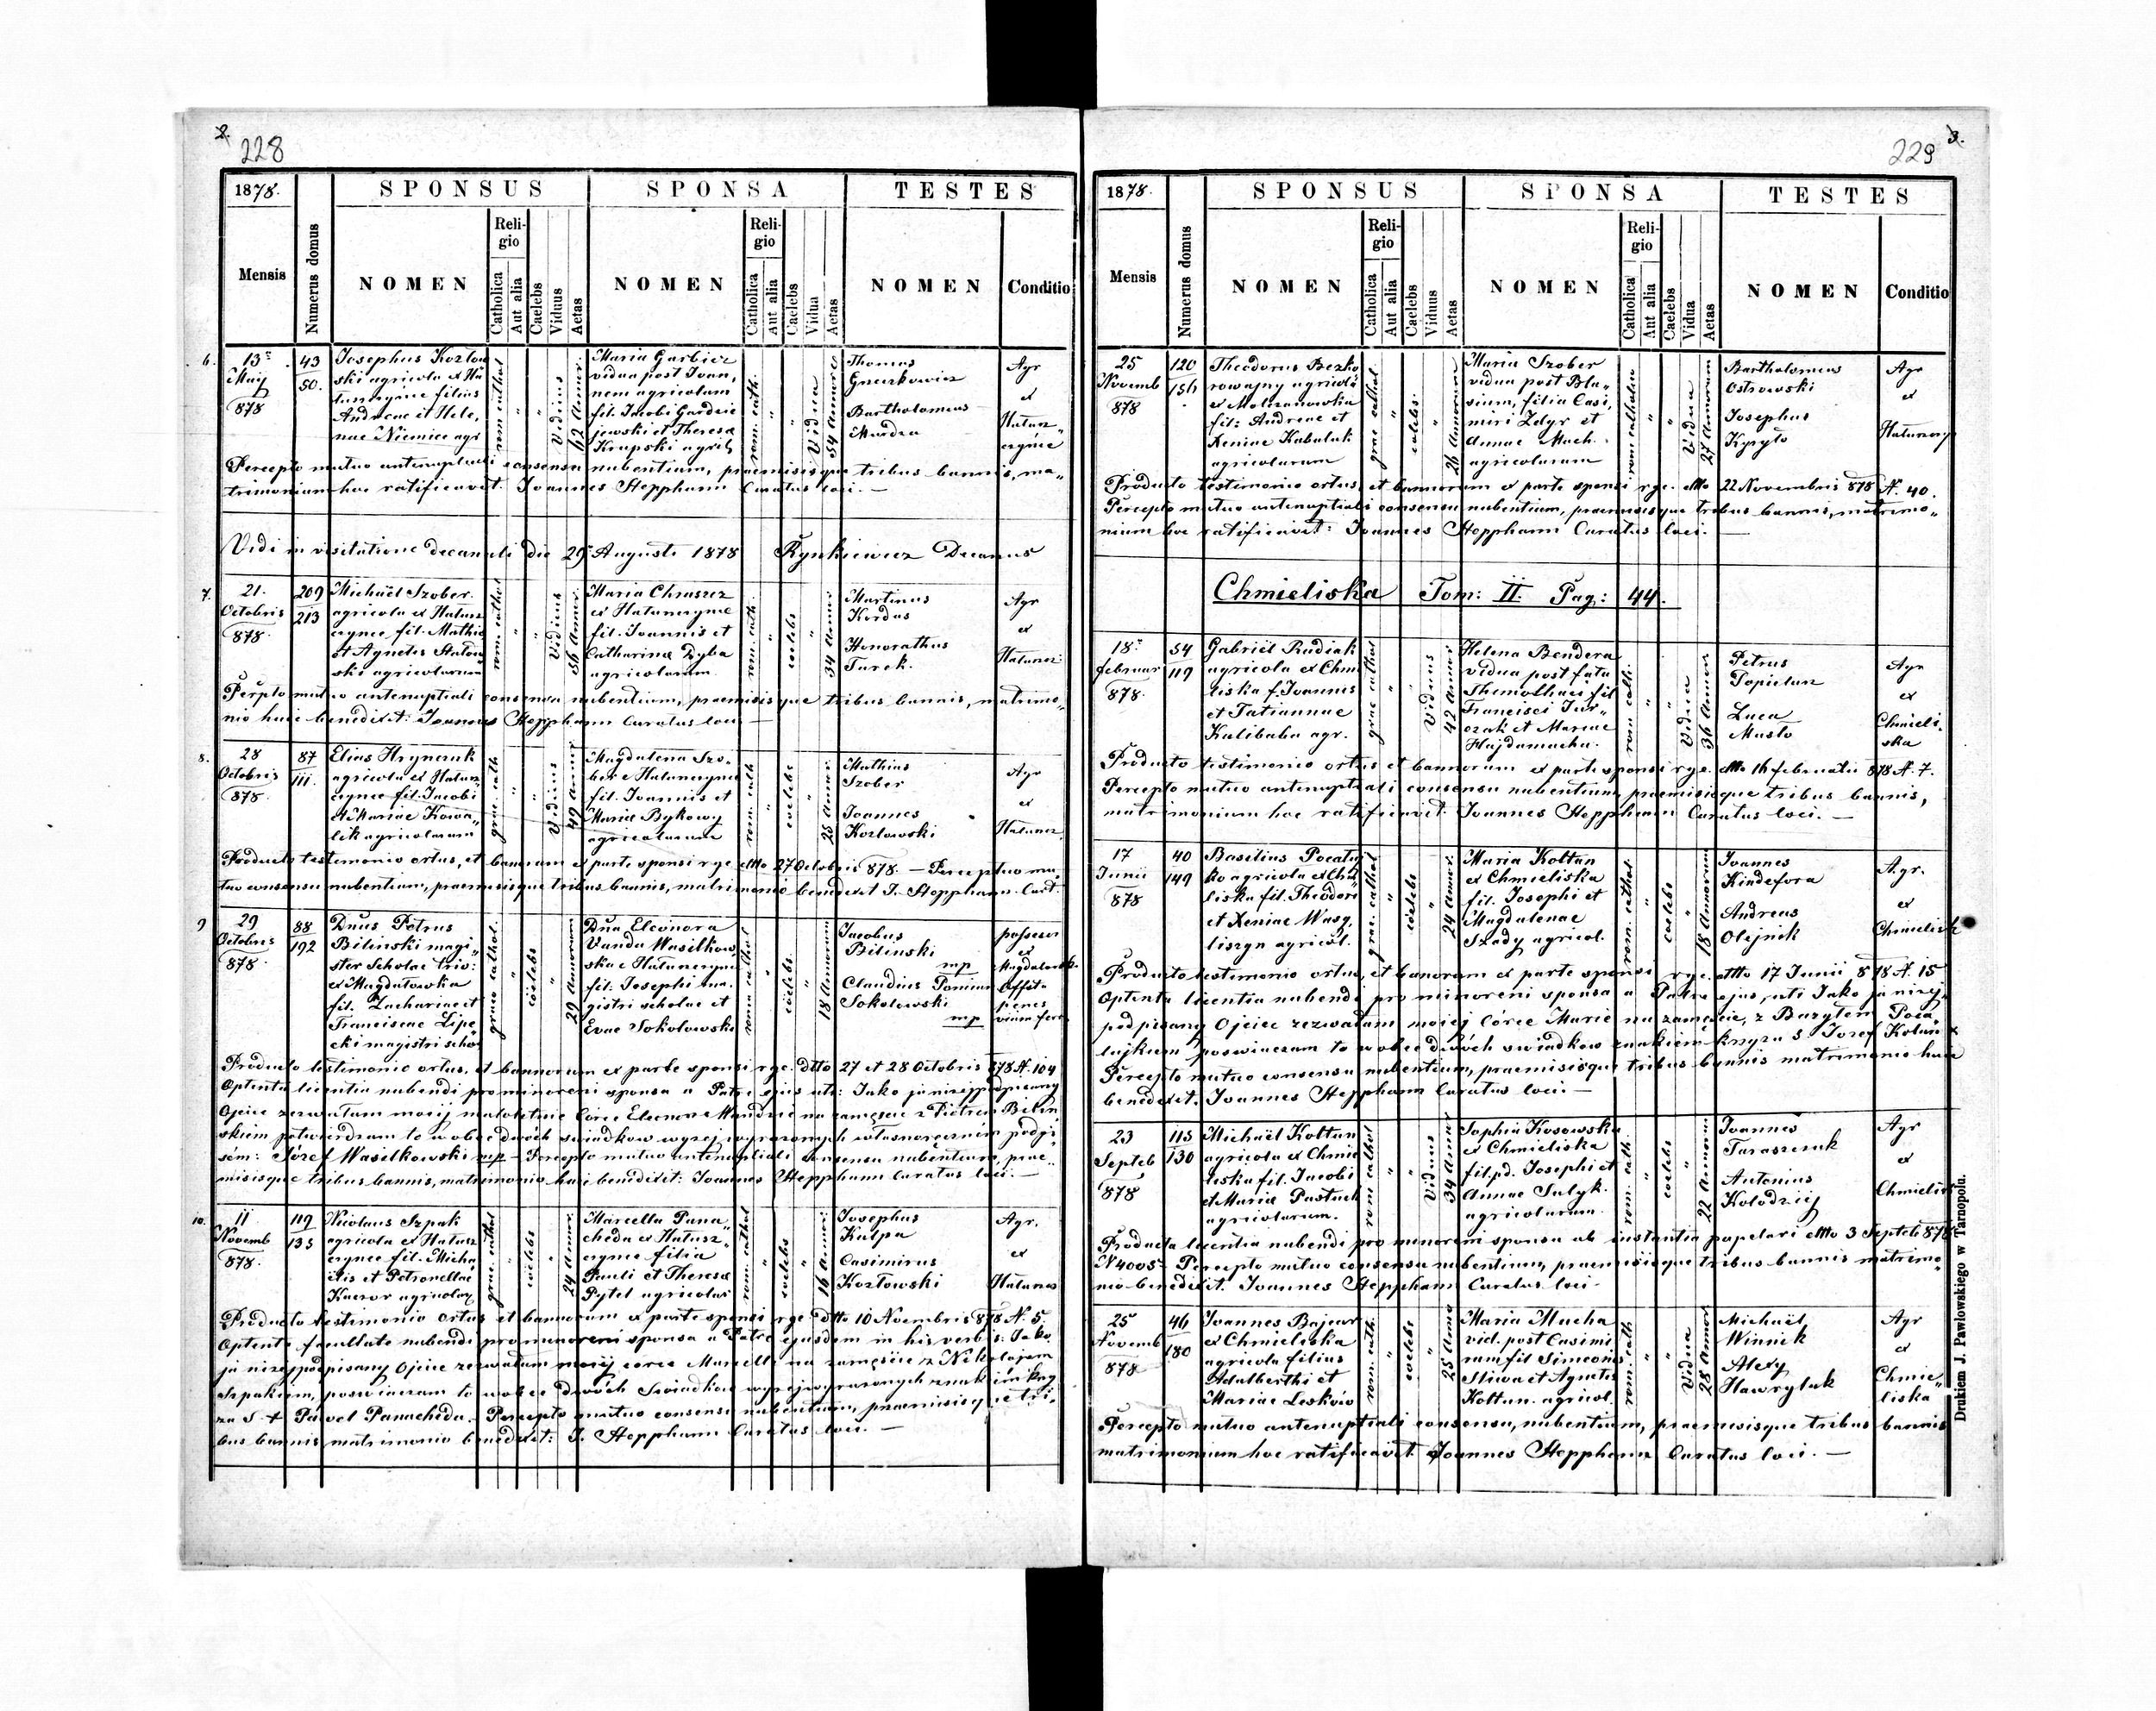 2.
228
1878.
SPONSUS
SPONSA
TESTES
Mensis
Numerus domus
NOMEN
Religio
Catholica
Aut alia
Caelebs
Viduus
Aetas
NOMEN
Religio
Catholica
Aut alia
Caelebs
Vidua
Aetas
NOMEN
Conditio
6.
13
Maij
878
43
50.
Josephus Kozłow
ski agricola ex Ha
luszczynce filius
Andreae et Hele,
nae Niemiec agr
rom cathol
Viduus
62 Annor.
Maria Garbicz
vidua post Joan,
nem agricolam
fil. Jacobi Gardzie
jewski et Theresa
Krupski agric
rom. cath.
Vidua
54 Annorum
Thomas
Gneczkowicz
Bartholomeus
Mardza
Agr
ex
Hałusz
czynce
Percepto mutuo antenuptiali consensu nubentium, praemisisque tribus bannis, ma,,
trimonium hoc ratificavit. Joannes Hepphann Curatus loci. —
Vidi in visitatione decanali die 29 Augusti 1878 Rynkiewicz Decanus
7.
21.
Octobris
878.
209
213
Michaël Szober
agricola ex Hałusz
czynce fil. Mathiae
et Agnetis Antoni
ski agricolarum
rom. cathol
Viduus
56 Annor.
Maria Chruszcz
ex Hałuszczynce
fil. Joannis et
Catharina Dyba
agricolarum
rom. cath.
coelebs
34 Annor.
Martinus
Kordas
Honorathus
Turek.
Agr
ex
Hałuszcz
Perpto mutuo antenuptiali consensu nubentium, praemisisque tribus bannis, matrimo,
nio huic benedixit: Joannes Hepphann Curatus loci —
8.
28
Octobris
878.
87
111.
Elias Hryncruk
agricola ex Hałusz
czynce fil. Jacobi
et Mariae Kowa,,
lik agricolarum
grae. cath
Viduus
49 Annor
Magdalena Szo,
ber e Hałuszczynce
fil. Joannis et
Maria Bykowy
agricolarum
rom. cath
coelebs
25 Annor.
Mathias
Szober
Joannes
Kozłowski
Agr
ex
Hałuszcz.
Producto testimonio ortus, et bannorum ex parte sponsi rge ddto 27 Octobris 878. — Perceptuo mu,
tuo consensu nubentium, praemisisque tribus bannis, matrimonio benedixit J. Hepphann Curt.
9
29
Octobris
878.
88
192
Dnus Petrus
Bilinski magi,,
ster Scholae triv:
ex Magdałowka
fil. Zachariae et
Franciscae Lipe
cki magistri schol
grae cathol.
cölebs
29 Annorum
Dna Eleonora
Vanda Wasilkow,
ska e Hałuszczynce
fil. Josephi ma,
gistri scholae et
Evae Sokolowski
roma cathol
cölebs.
18 Annorum
Jacobus
Bilinski
mp
Claudius
Sokolowski
mp
possesor
ex
Magdalowk.
penes
Producto testimonio ortus, et bannorum ex parte sponsi rge. ddto 27 et 28 Octobris 878 N. 104
Optenta licentia nubendi pro minoreni sponsa a Patre ejus uti: Jako ja niżej podpisany
Ojciec zezwalam mojej małoletnie Córce Eleonore Wandzie na zamęście z Piotrem Bilin
skiem potwierdzam to w obec dwóch świadkow wyzej wyrazonych własnorecznim podpi
sem: Józef Wasilkowski mp — Percepto mutuo antenuptiali consensu nubentium, prae,
misisque tribus bannis, matrimonio huic benedixit: Joannes Hepphann Curatus loci. —
10.
11
Novemb
878.
119
135
Nicolaus Szpak
agricola ex Hałusz
czynce fil. Micha
ëlis et Petronellae
Kaczor agricolar
grae. cathol
coelebs
24 Annor.
Marcella Pana,
cheda ex Hałusz,
czynce filia
Pauli et Theresa
Pytel agricolar
rom. cathol
coelebs
16 Annor.
Josephus
Kulpa
Casimirus
Kozłowski
Agr.
ex
Hałuszcz
Producto testimonio ortus et bannorum ex parte sponsi rge ddto 10 Novembris 878 N. 5.
Optenta facultate nubendi pro minoreni sponsa a Patre ejusdem in his verbis: Jako
ja niżej podpisany Ojciec zezwalam mojej corce Marcelli na zamęście z Nikolajem
Szpakiem, poswiaczam to w obec dwóch Swiadkow wyżej wyrazonych znakiem krzy
za S. + Paweł Panacheda. Percepto mutuo consensu nubentium, praemisisque tri,
bus bannis matrimonio benedixit: J. Hepphann Curatus loci. —
229
3.
1878.
SPONSUS
SPONSA
TESTES
Mensis
Numerus domus
NOMEN
Religio
Catholica
Aut alia
Caelebs
Viduus
Aetas
NOMEN
Religio
Catholica
Aut alia
Caelebs
Vidua
Aetas
NOMEN
Conditio
25
Novemb
878
120
156
Theodorus Bezko
rowajny agricola
ex Molczanowka
fil: Andreae et
Xeniae Kabaluk
agricolarum
grae cathol.
coelebs.
26 Annorum
Maria Szober
vidua post Bla,,
sium, filia Casi,
miri Zdyr et
Annae Mach.
agricolarum
rom cathol
Vidua
27 Annorum
Bartholomeus
Ostrowski
Josephus
Kyryło
Agr
ex
Hałuszczy
Producto testimonio ortus, et bannorum ex parte sponsi rge. ddto 22 Novembris 878 N. 40.
Percepto mutuo antenuptiali consensu nubentium, praemisisque tribus bannis, matrimo,,
nium hoc ratificavit: Joannes Hepphann Curatus loci. —
Chmieliska Tom: II. Pag: 44.
18
februar
878.
54
119
Gabriël Rudiak
agricola ex Chmi
liska f. Joannis
et Tatiannae
Kulibaba agr.
grae cathol
Viduus
42 Annor
Helena Bendera
vidua post fata
Thimothaei fil
Francisci Jur,,
czak et Mariae
Hajdamacha.
rom cath.
Vidua
36 Annor
Petrus
Popielarz
Luca
Masło
Agr
ex
Chmieli,
ska
Producto testimonio ortus et bannorum ex parte sponsi rge. ddto 16 februarii 878 N. 7.
Percepto mutuo antenuptiali consensu nubentium, praemisisque tribus bannis,
matrimonium hoc ratificavit. Joannes Hepphann Curatus loci. —
17
Junii
878
40
149
Basilius Pocałuj
ko agricola ex Chmi
liska fil. Theodori
et Xeniae Wasy,
liszyn agricol.
grae. cathol
coelebs
24 Annor.
Maria Kołtun
ex Chmieliska
fil. Josephi et
Magdalenae
Szady agricol.
rom. cathol.
coelebs
18 Annorum
Joannes
Kindefora
Andreas
Olejnik
Agr.
ex
Chmielisk
Producto testimonio ortus, et banorum ex parte sponsi rge. ddto 17 Junii 878 N. 15
Optenta licentia nubendi pro minoreni sponsa a Patre ejus, uti Jako ja nizej,
podpisany Ojciec zezwalam mojej Córce Marie na zamęście, z Bazylem Poca,
łujkiem poswiaczam to w obec dwóch swiadkow znakiem krzyza S Jozef Kołtun x
Percepto mutuo consensu nubentium, praemisisque tribus bannis matrimonio huic
benedixit. Joannes Hepphann Curatus loci —
23
Septeb
878
115
130
Michaël Kołtun
agricola ex Chmie
liska fil. Jacobi
et Maria Pastuch
agricolarum.
rom cathol
Viduus
34 Annor
Sophia Kosowska
ex Chmieliska
fil. pd. Josephi et
Annae Salyk.
agricolarum.
rom. cath.
coelebs
22 Annorum
Joannes
Taraszczuk
Antonius
Kolodziej
Agr
ex
Chmielisk
Producta licentia nubendi pro minoreni sponsa ab instantia pupelari ddto 3 Septeb 878
N 4005 Percepto mutuo consensu nubentium, praemisisque tribus bannis matrimo,
nio benedixit. Joannes Hepphann Curatus loci —
25
Novemb
878
46
180
Joannes Bajcar
ex Chmieliska
agricola filius
Adalberthi et
Mariae Leskow
rom. cath.
coelebs
25 Annor
Maria Mucha
vid. post Casimi
rum fil Simeonis
Sliwa et Agnetis
Kołtun. agricol.
rom. cath
Vidua
28 Annor
Michaël
Winnik
Alexy
Hawryluk
Agr
ex
Chmie,,
liska
Percepto mutuo antenuptiali consensu, nubentium, praemisisque tribus bannis
matrimonium hoc ratificavit. Joannes Hepphann Curatus loci. —
Drukiem J. Pawłowskiego w Tarnopolu.